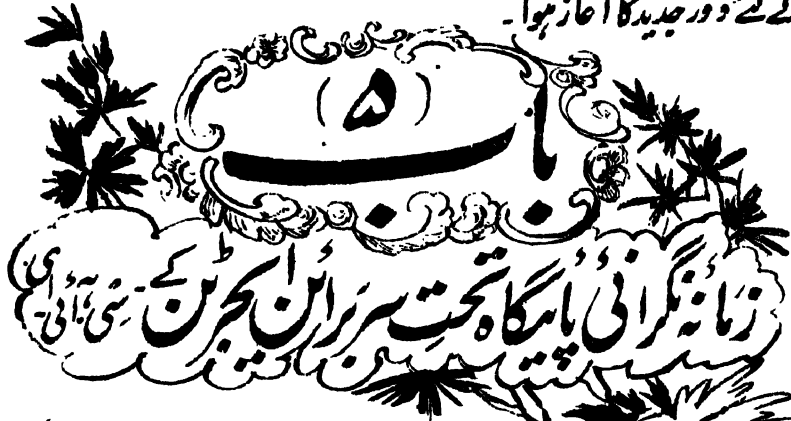 کے لئے دور جدید کا آغاز ہوا۔
باب (۵)
زمانہ نگرانی پائیگاہ تحت سر برائن ایجرٹن کے۔سی۔آئی۔ای